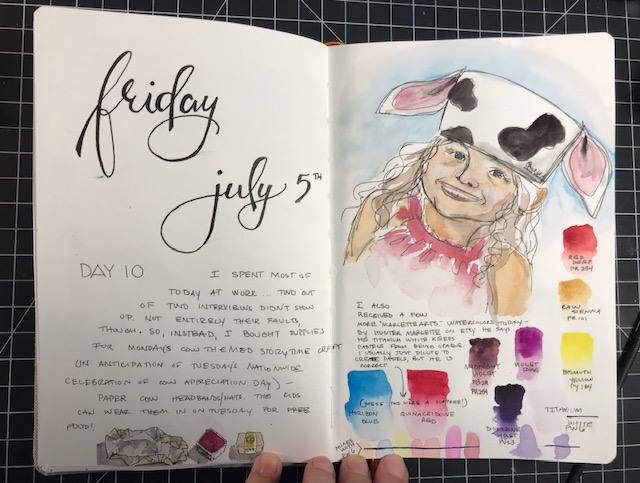 friday
july 5TH
DAY 10
I SPENT MOST OF
TODAY AT WORK... TWO OUT
OF TWO INTERVIEWS DIDN'T SHOW
UP. NOT ENTIRELY THEIR FAULTS,
THOUGH. SO, INSTEAD, I BOUGHT SUPPLIES
FOR MONDAY'S COW THEMED STORYTIME CRAFT
(IN ANTICIPATION OF TUESDAY'S NATIONWIDE
CELEBRATION OF COW APPRECIATION DAY) -
PAPER COW HEADBANDS/HATS. THE KIDS
CAN WEAR THEM IN ON TUESDAY FOR FREE
FOOD!
I ALSO
RECEIVED A FEW
MORE "MARLETTE ARTS" WATERCOLORS TODAY -
BY HUNTER MARLETTE ON ETSY. HE SAYS
HIS TITANIUM WHITE KEEPS
PASTELS FROM BEING OPAQUE.
I USUALLY JUST DILUTE TO
CREATE PASTELS, BUT HE IS
CORRECT
(GUESS TWO WERE A SURPRISE!)
HORIZON
BLUE
QUINACRIDONE
RED
VIOLET
PR254
VIOLET
DIOXAZINE
VIOLET
PV23
RED
DEEP
PR254
RAW
SIENNA
PR101
BISMUTH
YELLOW
PY184
TITANIUM
WHITE
PW6
MIXED
WITH
PW6